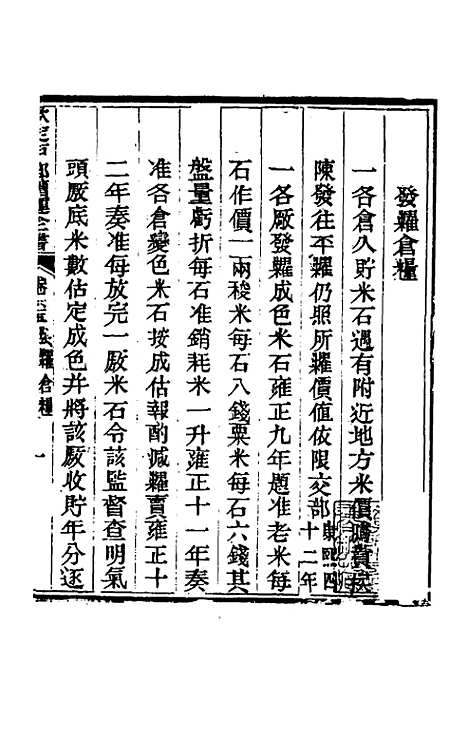 發糶倉糧
一各倉久貯米石遇有附近地方米價騰貴按
陳發往平糶仍照所糶價值依限交部康熙四十二年
一各厫發糶成色米石雍正九年題准老米每
石作價一兩稜米每石八錢粟米每石六錢其
盤量虧折每石准銷耗米一升雍正十一年奏
准各倉變色米石按成估報酌減糶賣雍正十
二年奏准每放完一厫米石令該監督查明氣
頭厫底米數估定成色并將該厫收貯年分逐
欽定戶部漕運全書 卷 發糶倉糧 一